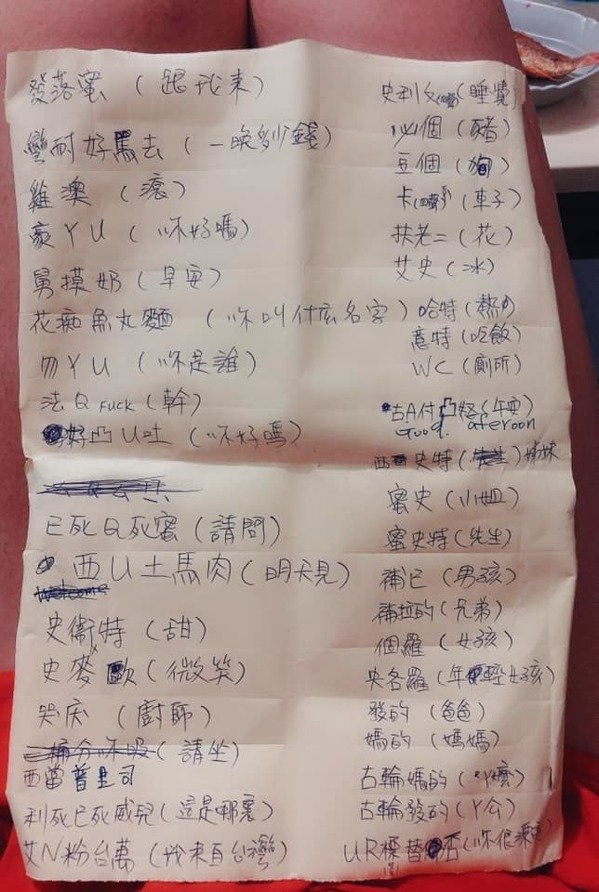 發落蜜 (跟我來)
蠻耐好馬去 (一晚多少錢)
雞澳 (滾)
豪ㄚU (你好嗎)
舅摸奶 (早安)
花痴魚丸麵 (你叫什么名字)
ㄇㄚU (你是誰)
法Q Fuck (幹)
好凸U吐 (你好嗎)
已死Q死蜜 (請問)
西U土馬肉 (明天見)
史衛特 (甜)
史麥歐 (微笑)
哭庆 (廚師)
(請坐)
西當普里司
利死已死威兒 (這是哪裏)
艾N粉台萬 (我來自台灣)
史利 (睡覺)
必個 (豬)
豆個 (狗)
卡 (車子)
扶老二 (花)
艾史 (冰)
哈特 (熱的)
意特 (吃飯)
WC (廁所)
古A付凸怒 (午安)
Good aferoon
西史特 姊妹
蜜史 (小姐)
蜜史特 (先生)
補已 (男孩)
補拉的 (兄弟)
個羅 (女孩)
央各羅 (年輕女孩)
發的 (爸爸)
媽的 (媽媽)
古輪媽的 (ㄚ嬤)
古輪發的 (ㄚ公)
UR標替否 (你很漂亮)